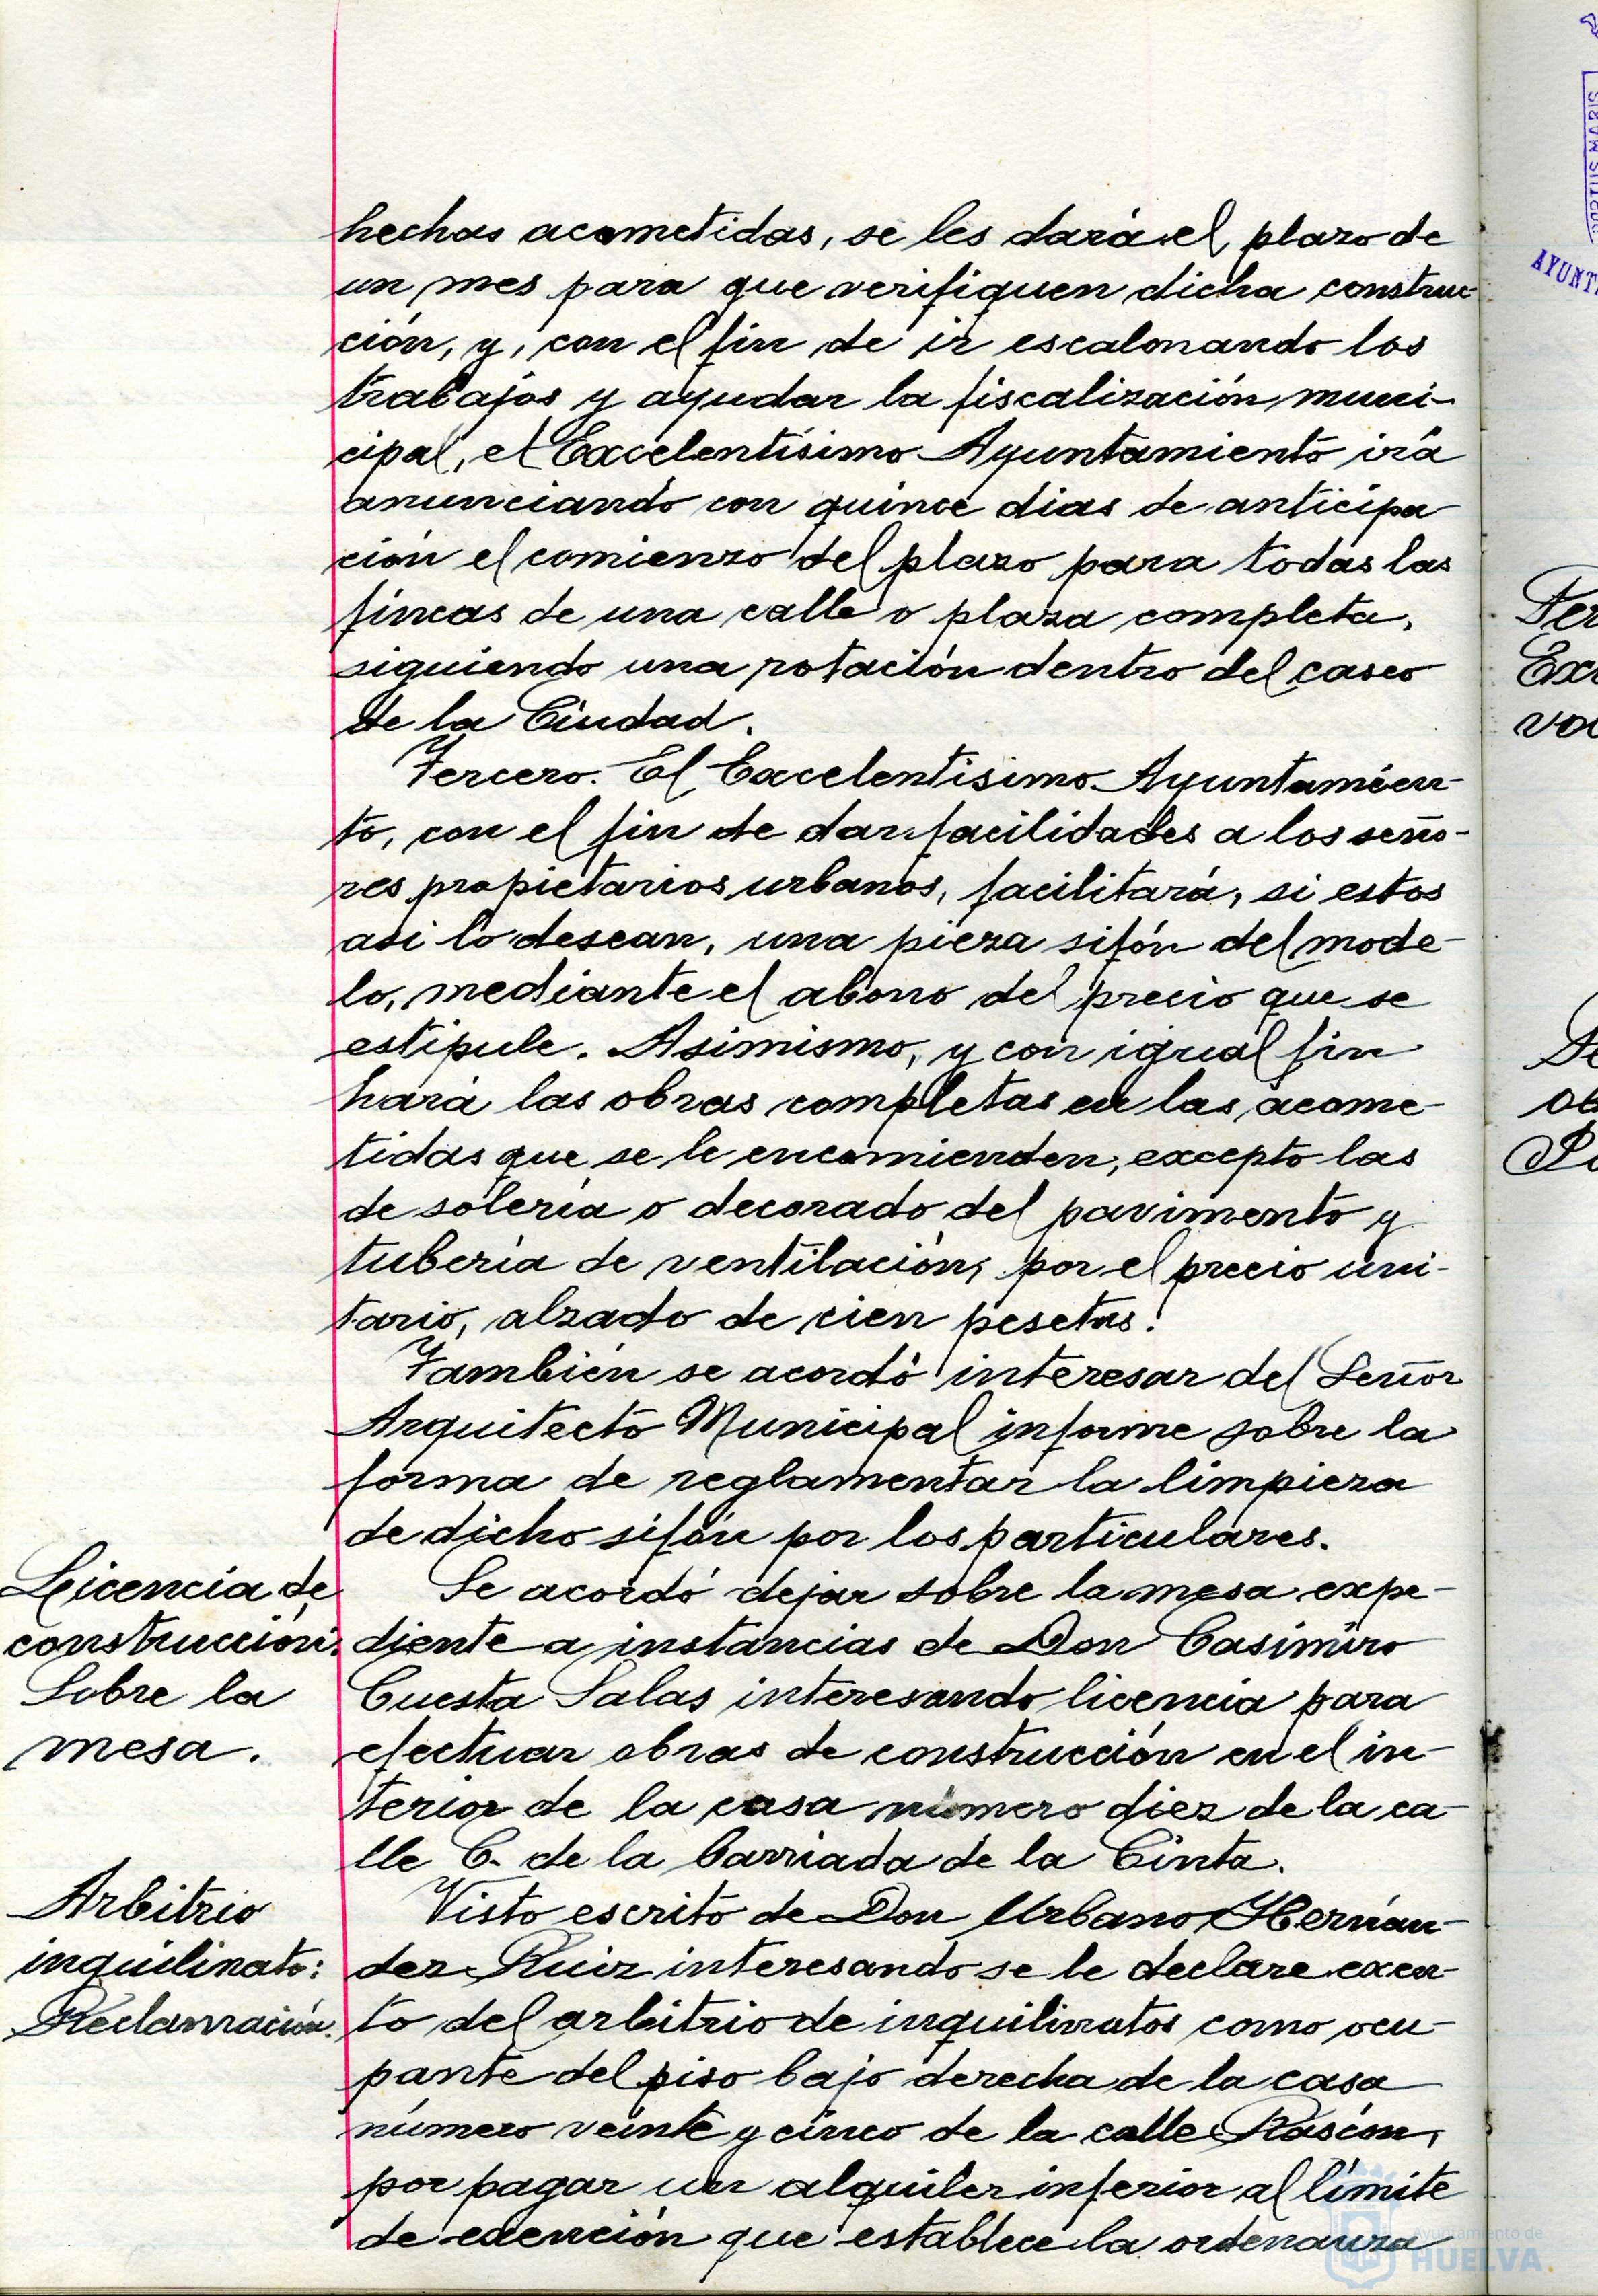 hechas acometidas, se les dará el plazo de
un mes para que verifiquen dicha construc-
ción, y, con el fin de ir escalonando los
trabajos y ayudar la fiscalización muni-
cipal, el Excelentísimo Ayuntamiento irá
anunciando con quince dias de anticipa-
ción el comienzo del plazo para todas las
fincas de una calle o plaza completa,
siguiendo una rotación dentro del casco
de la Ciudad.
Tercero. El Excelentisimo Ayuntamien-
to, con el fin de dar facilidades a los seño-
res propietarios urbanos, facilitará, si estos
asi lo desean, una pieza sifón del mode-
lo, mediante el abono del precio que se
estipule. Asimismo, y con igual fin
hará las obras completas en las acome-
tidas que se le encomienden, excepto las
de solería o decorado del pavimento y
tubería de ventilación, por el precio uni-
tario, alzado de cien pesetas.
También se acordó interesar del Señor
Arquitecto Municipal informe sobre la
forma de reglamentar la limpieza
de dicho sifón por los particulares.
Licencia de
construcción.
Sobre la
mesa.
Se acordó dejar sobre la mesa expe-
diente a instancias de Don Casimiro
Cuesta Salas interesando licencia para
efectuar obras de construcción en el in-
terior de la casa número diez de la ca-
lle C. de la barriada de la Cinta.
Arbitrio
inquilinato:
Reclamación.
Visto escrito de Don Urbano Hernán-
dez Ruiz interesando se le declare exen-
to del arbitrio de inquilinatos como ocu-
pante del piso bajo derecha de la casa
número veinte y cinco de la calle Rascón,
por pagar un alquiler inferior al límite
de exención que establece la ordenanza
Ayuntamiento de
HUELVA
PORTUS MARIS
AYUNT